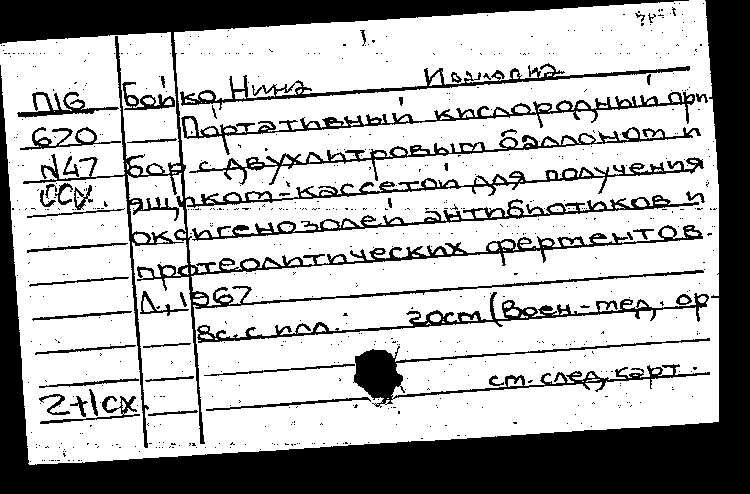 1.
П16 Бойко, Нина
670 Портативный кислородный при-
N47 бор с двухлитровым баллоном и
ССХ. ящиком-кассетой для получения
оксигенозолей антибиотиков и
протеолитических ферментов.
Л., 1967
8с. с илл. 20см (Воен.-мед. ор-
см. след. карт.
2+1сх.